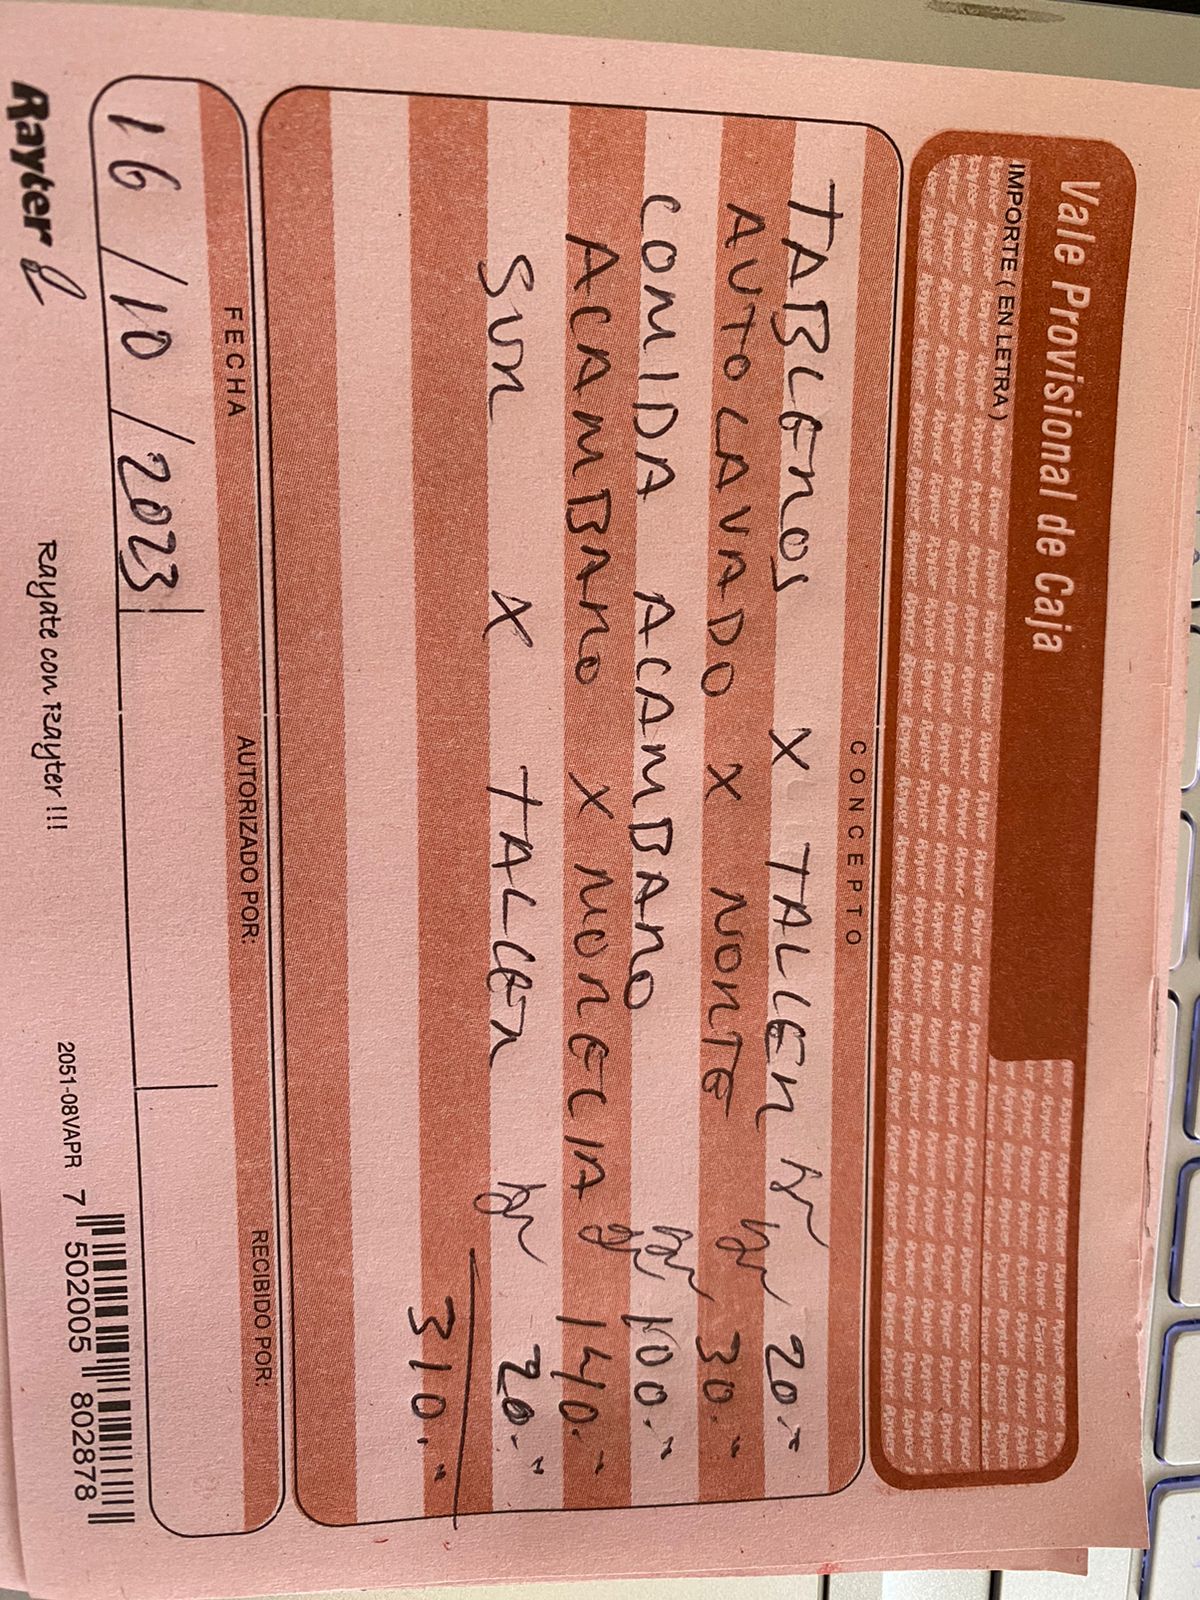 Vale Provisional de Caja
IMPORTE ( EN LETRA )
CONCEPTO
TABLEROS X TALLER 20.-
AUTOLAVADO X NORTE 30.-
COMIDA ACAMBARO 100.-
ACAMBARO X MORELIA 140.-
SUR X TALLER 20.-
310.-
FECHA AUTORIZADO POR: RECIBIDO POR:
16/10/2023
Rayter Rayate con Rayter !!! 2051-08VAPR 7 502005 802878